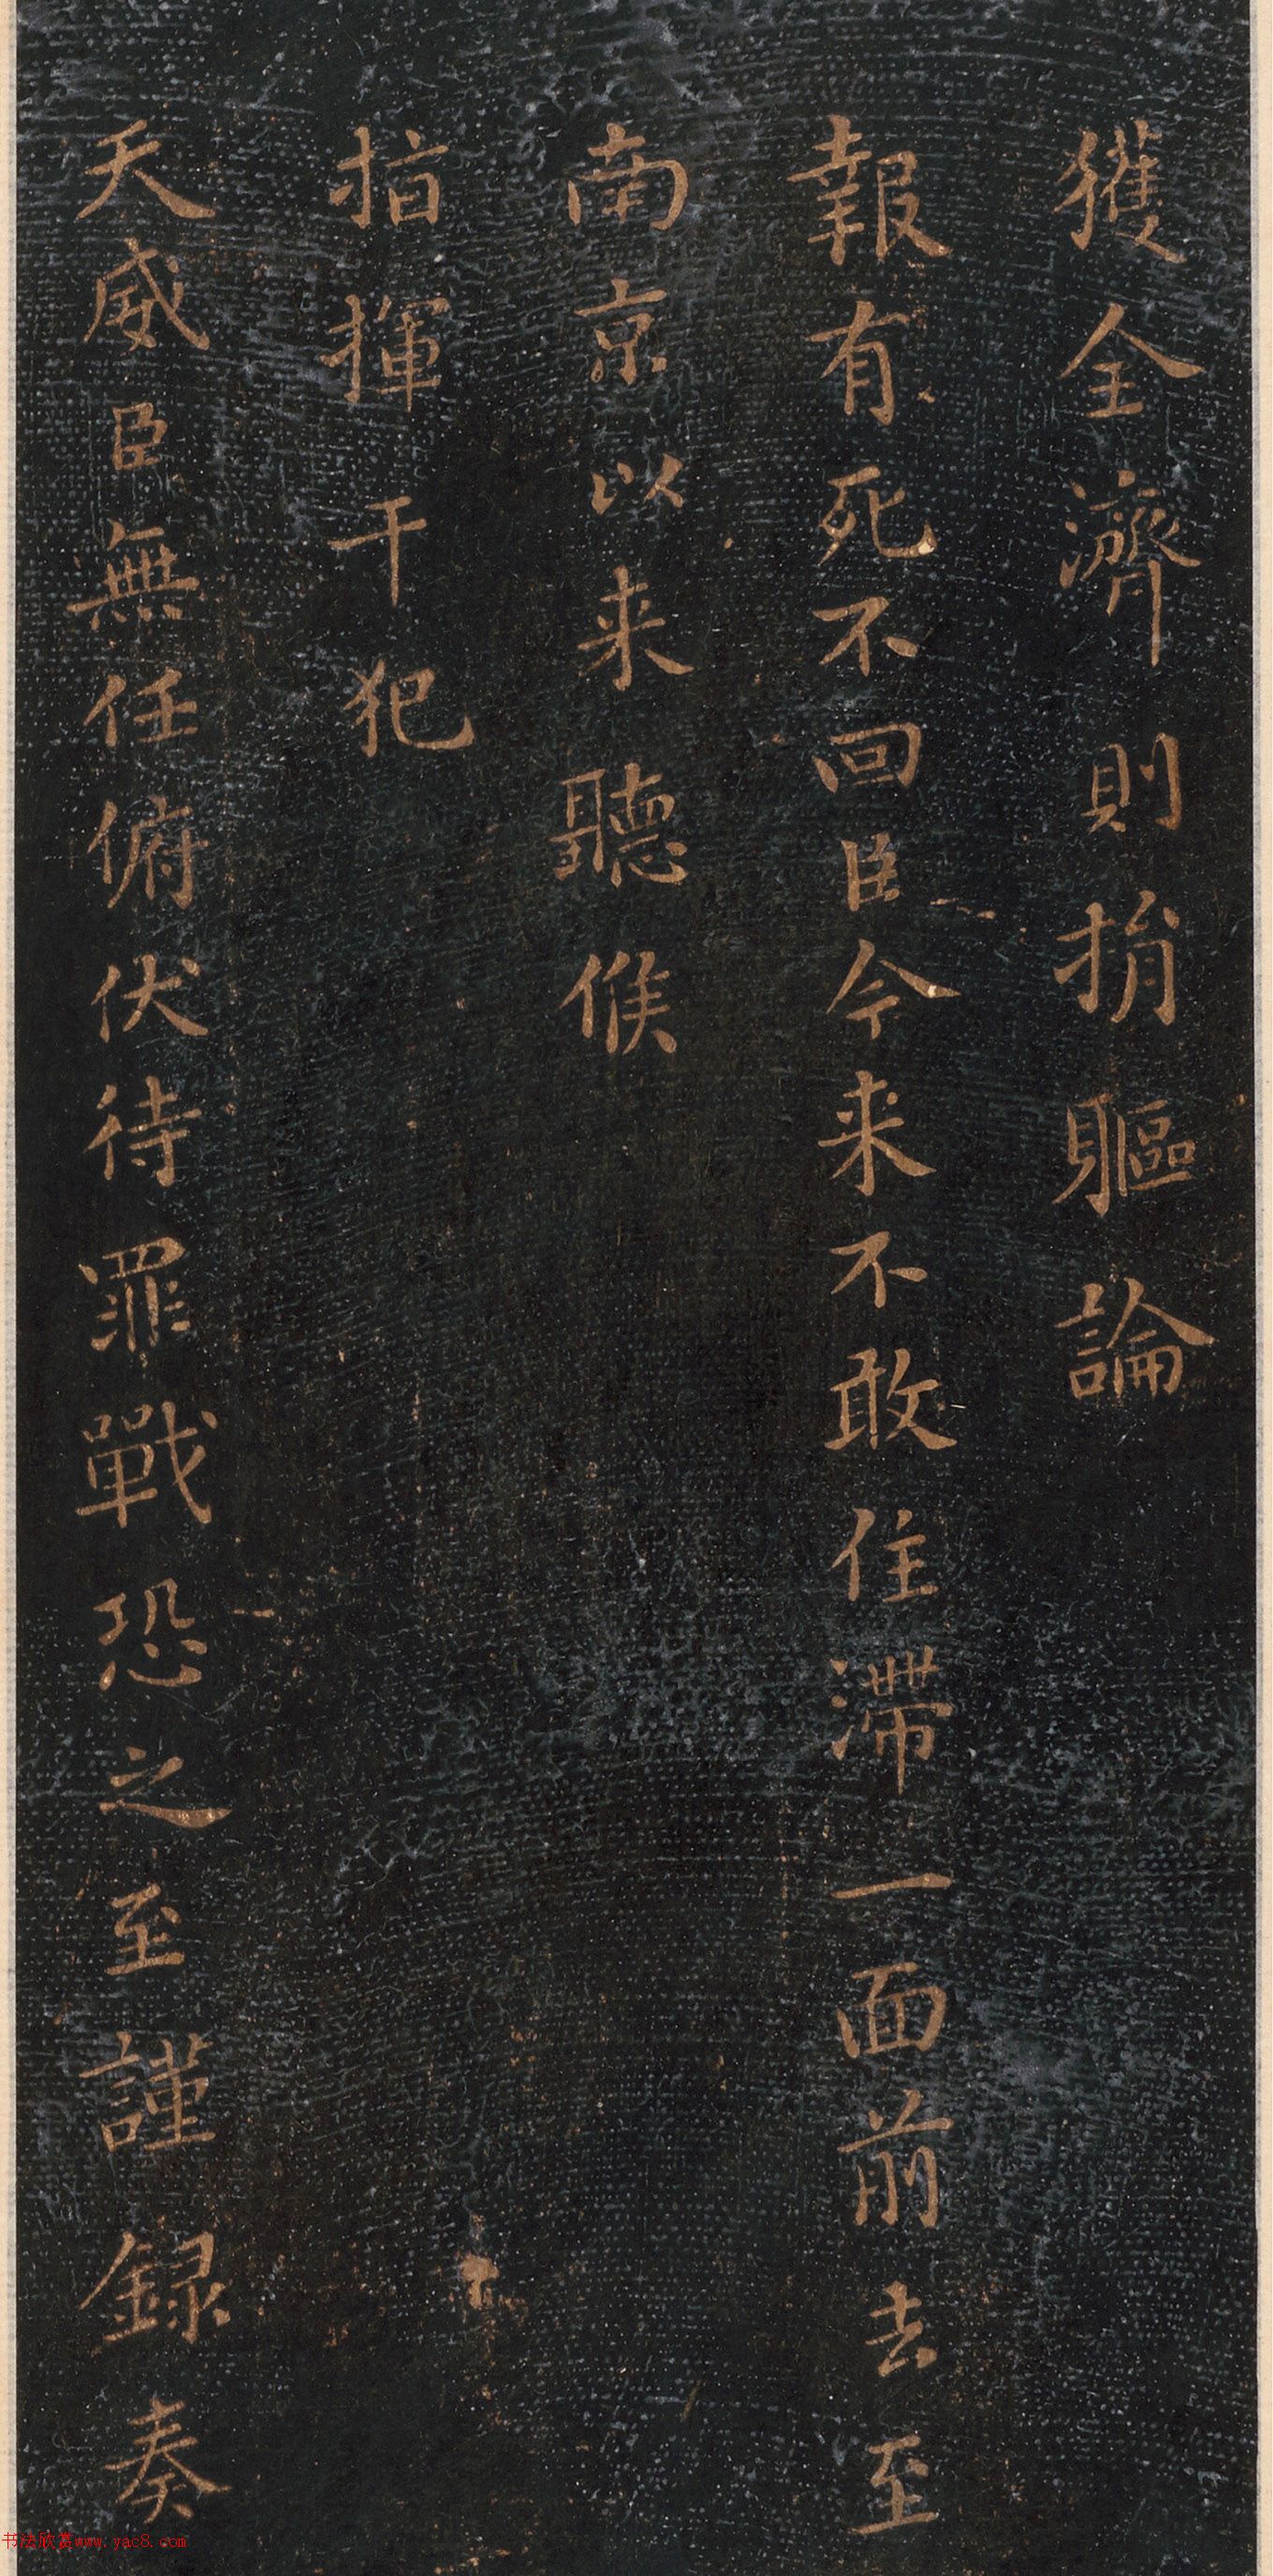 獲全濟則捐軀論
報有死不回臣今来不敢住滯一面前去至
南京以来聽候
指揮干犯
天威臣無任俯伏待罪戰恐之至謹録奏
书法欣赏www.yac8.com